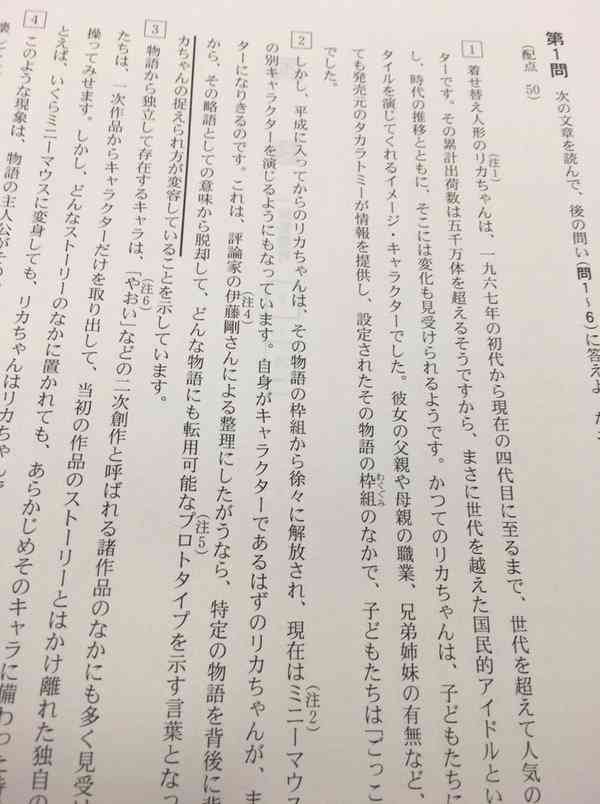 第1問 次の文章を読んで、後の問い(問1～6)に答えよ。
(配点 50)
1 着せ替え人形のリカちゃんは、一九六七年の初代から現在の四代目に至るまで、世代を超えて人気の
(注1)
ターです。その累計出荷数は五千万体を超えるそうですから、まさに世代を越えた国民的アイドルとい
し、時代の推移とともに、そこには変化も見受けられるようです。かつてのリカちゃんは、子どもたちに
タイルを演じてくれるイメージ・キャラクターでした。彼女の父親や母親の職業、兄弟姉妹の有無など、
ても発売元のタカラトミーが情報を提供し、設定されたその物語の枠組のなかで、子どもたちは「ごっこ
わくぐみ
でした。
2 しかし、平成に入ってからのリカちゃんは、その物語の枠組から徐々に解放され、現在はミニーマウス
(注2)
の別キャラクターを演じるようにもなっています。自身がキャラクターであるはずのリカちゃんが、ま
ターになりきるのです。これは、評論家の伊藤剛さんによる整理にしたがうなら、特定の物語を背後に背
(注4)
から、その略語としての意味から脱却して、どんな物語にも転用可能なプロトタイプを示す言葉となっ
(注5)
カちゃんの捉えられ方が変容していることを示しています。
3 物語から独立して存在するキャラは、「やおい」などの二次創作と呼ばれる諸作品のなかにも多く見受け
(注6)
たちは、一次作品からキャラクターだけを取り出して、当初の作品のストーリーとはかけ離れた独自の
操ってみせます。しかし、どんなストーリーのなかに置かれても、あらかじめそのキャラに備わった
とえば、いくらミニーマウスに変身しても、リカちゃんはリカちゃん
4 このような現象は、物語の主人公が